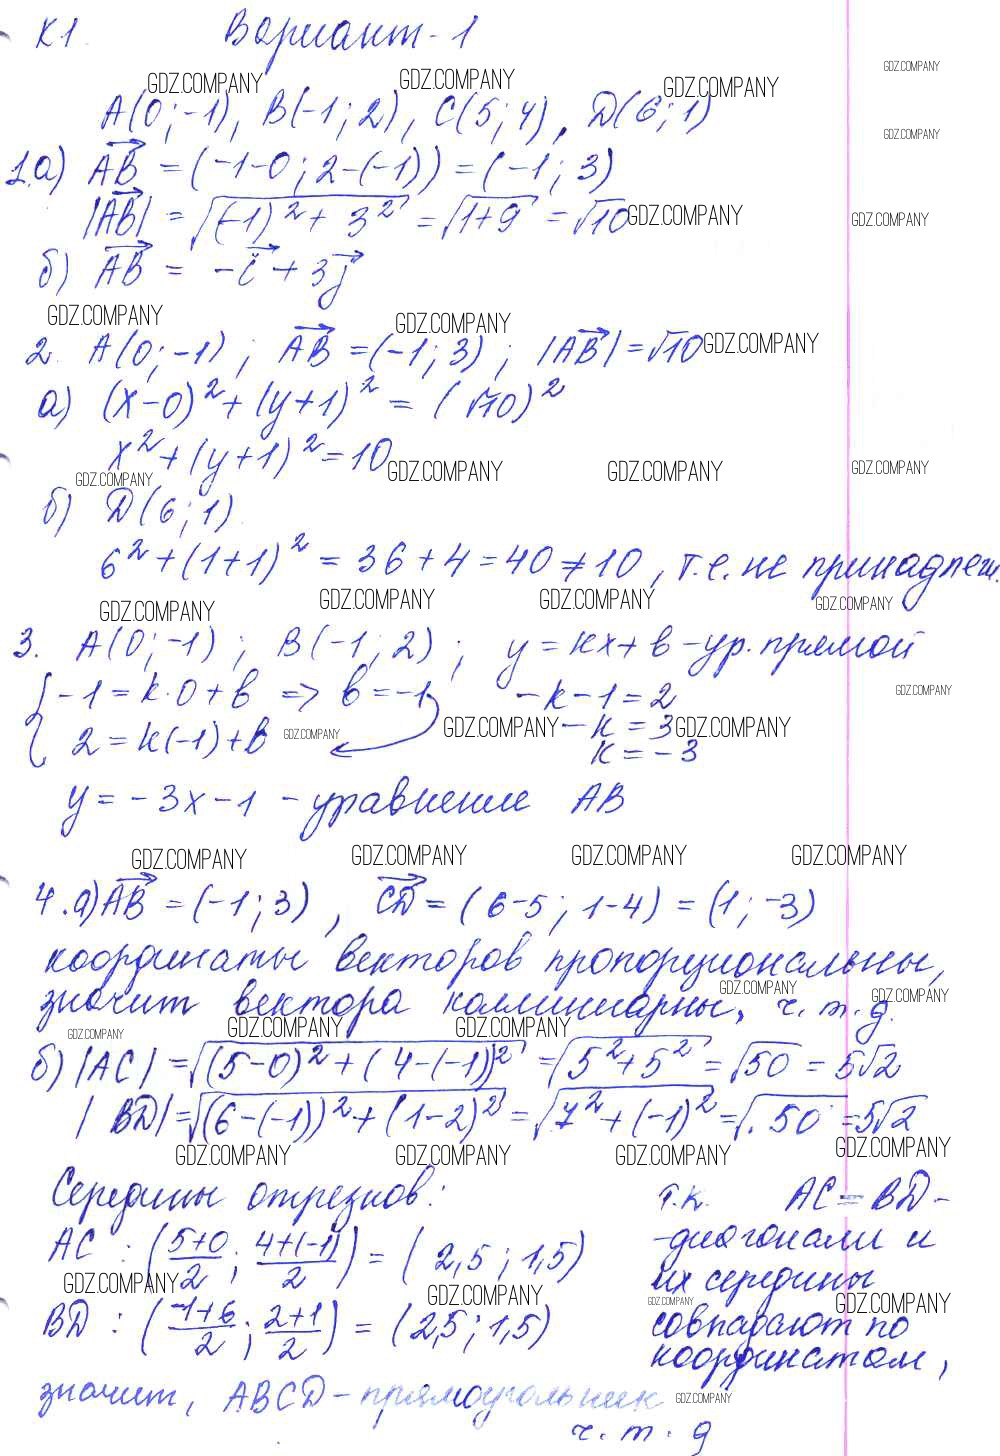 К1. Вариант - 1
GDZ.COMPANY GDZ.COMPANY GDZ.COMPANY GDZ.COMPANY
A(0;-1), B(-1;2), C(5;4), D(6;1)
GDZ.COMPANY
1.а) AB = (-1-0; 2-(-1)) = (-1; 3)
|AB| = √((-1)² + 3²) = √(1+9) = √10
GDZ.COMPANY GDZ.COMPANY
б) AB = -i + 3j
GDZ.COMPANY GDZ.COMPANY
2. A(0;-1); AB = (-1; 3); |AB| = √10
GDZ.COMPANY
а) (x-0)² + (y+1)² = (√10)²
x² + (y+1)² = 10
GDZ.COMPANY GDZ.COMPANY GDZ.COMPANY GDZ.COMPANY
б) D(6;1)
6² + (1+1)² = 36 + 4 = 40 ≠ 10, т.е. не принадлеж.
GDZ.COMPANY GDZ.COMPANY GDZ.COMPANY GDZ.COMPANY
3. A(0;-1); B(-1;2); y = kx + b - ур. прямой
{ -1 = k·0 + b => b = -1 -k-1 = 2
GDZ.COMPANY
2 = k(-1) + b -k = 3
GDZ.COMPANY GDZ.COMPANY GDZ.COMPANY
k = -3
y = -3x - 1 - уравнение AB
GDZ.COMPANY GDZ.COMPANY GDZ.COMPANY GDZ.COMPANY
4. а) AB = (-1; 3), CD = (6-5; 1-4) = (1; -3)
координаты векторов пропорциональны,
значит вектора коллинеарны, ч.т.д.
GDZ.COMPANY GDZ.COMPANY
GDZ.COMPANY GDZ.COMPANY GDZ.COMPANY
б) |AC| = √((5-0)² + (4-(-1))²) = √(5²+5²) = √50 = 5√2
|BD| = √((6-(-1))² + (1-2)²) = √(7² + (-1)²) = √50 = 5√2
GDZ.COMPANY GDZ.COMPANY GDZ.COMPANY GDZ.COMPANY
Середины отрезков:
AC : ((5+0)/2; (4+(-1))/2) = (2,5; 1,5)
GDZ.COMPANY GDZ.COMPANY
BD : ((-1+6)/2; (2+1)/2) = (2,5; 1,5)
т.к. AC = BD -
- диагонали и
их середины
GDZ.COMPANY GDZ.COMPANY
совпадают по
координатам,
значит, ABCD - прямоугольник
GDZ.COMPANY
ч.т.д